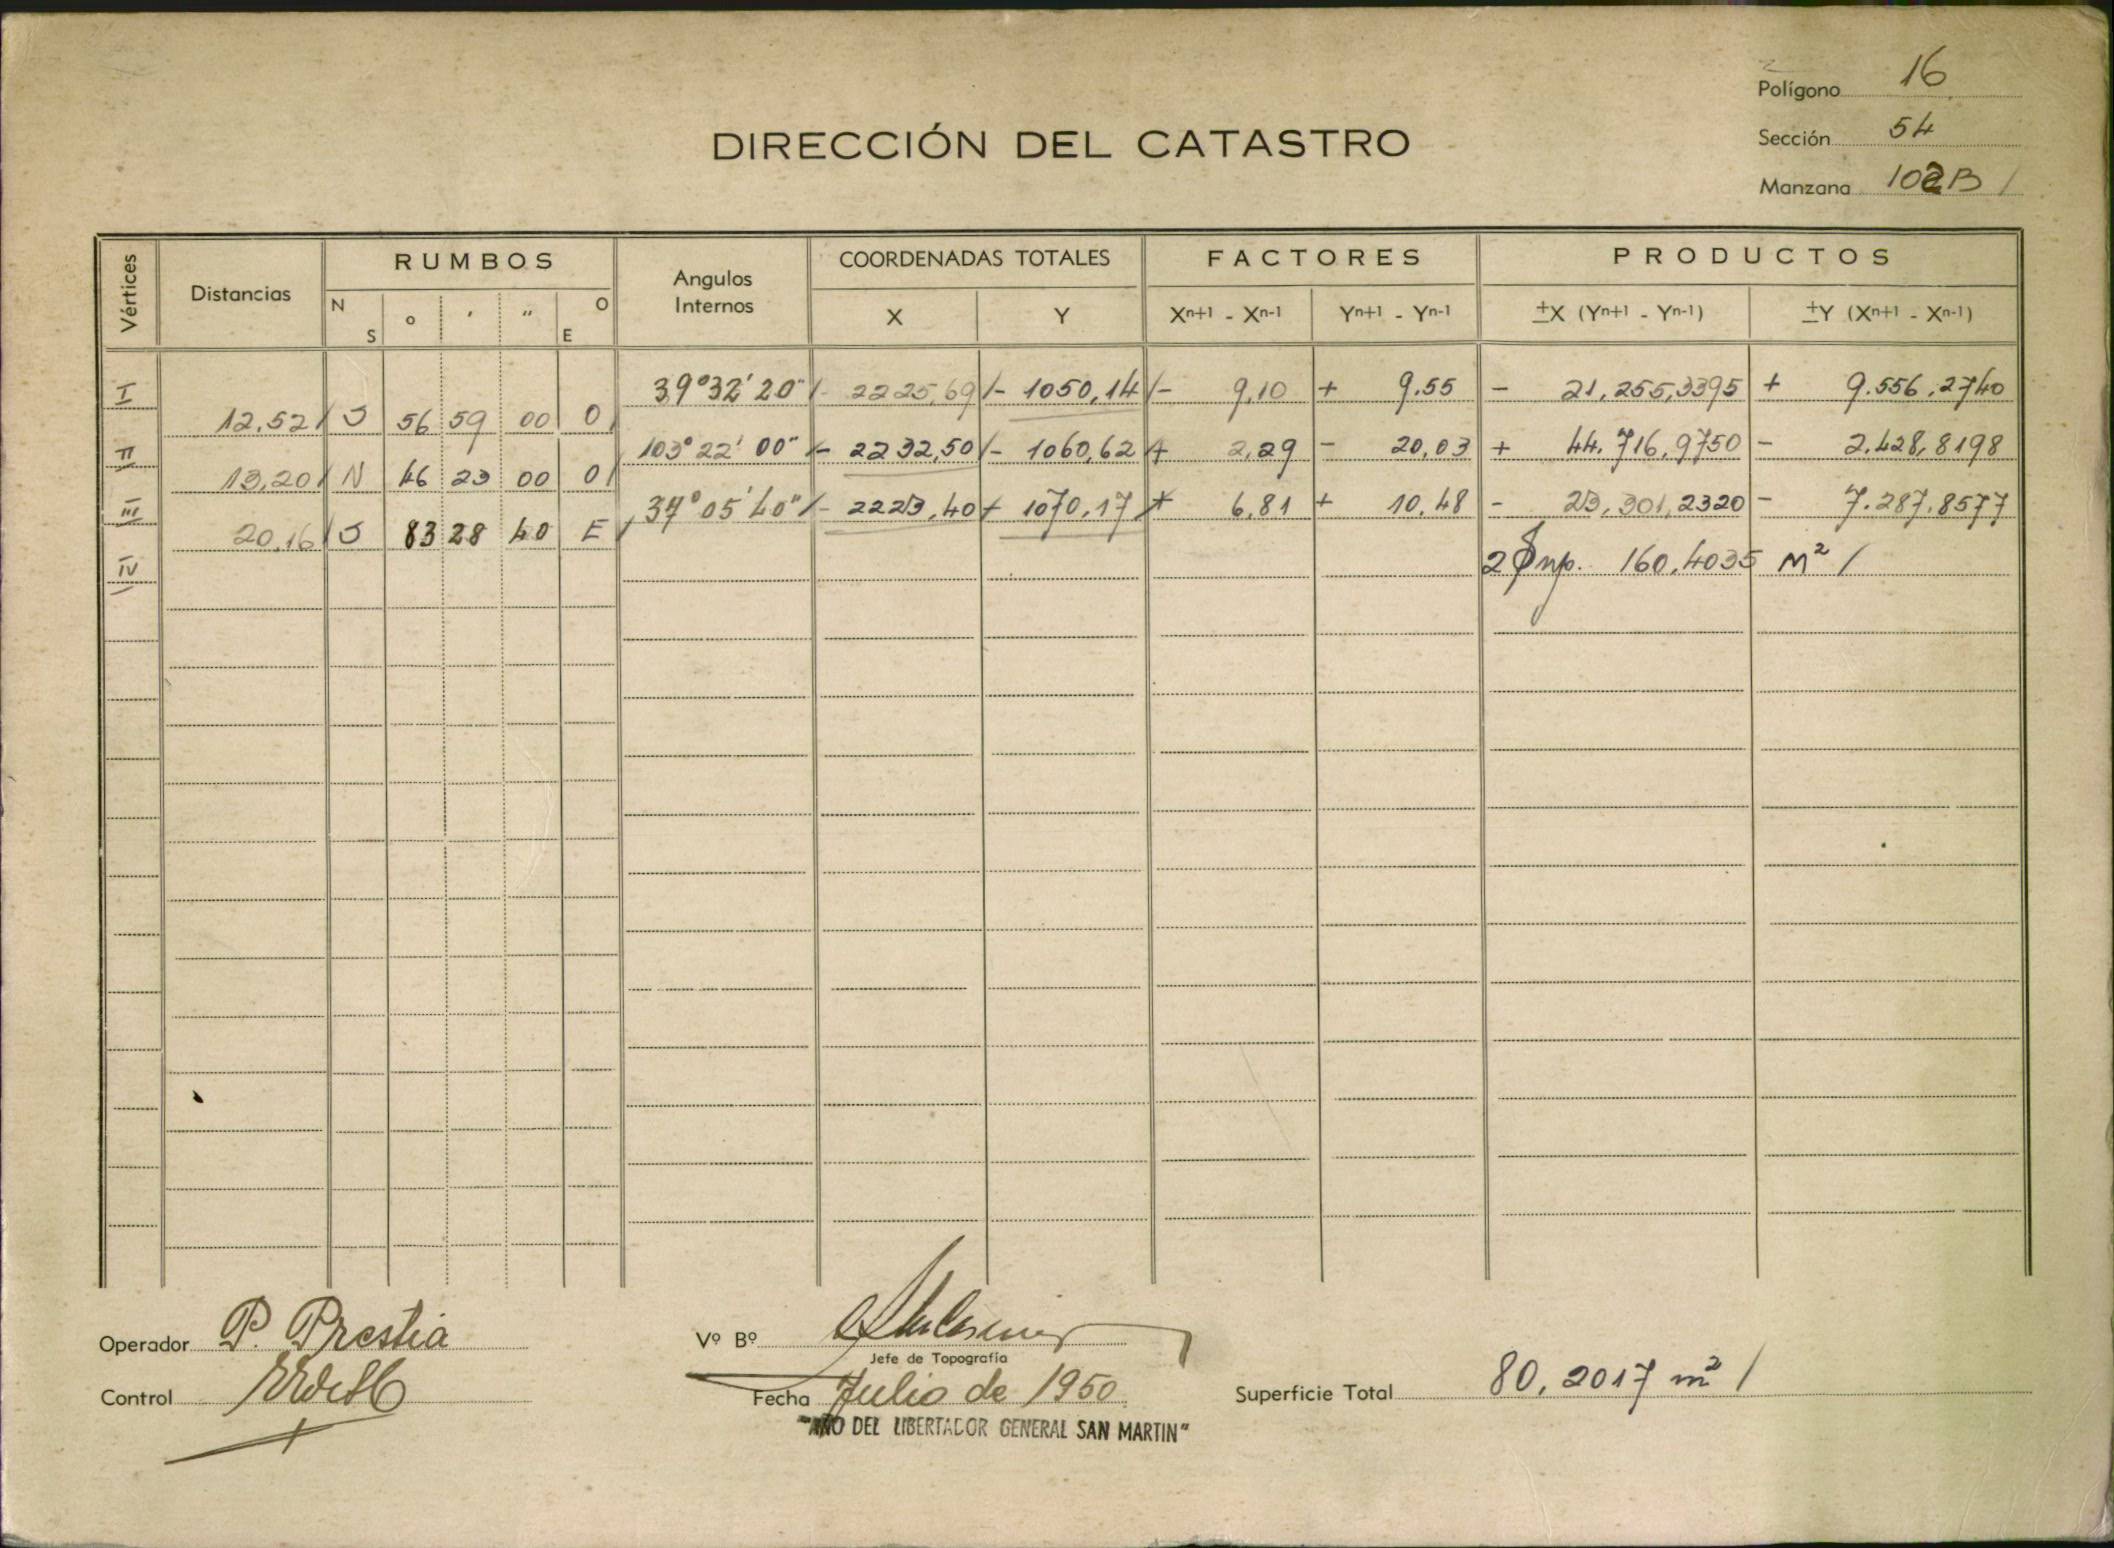 Polígono 16
Sección 54
Manzana 102B /
DIRECCIÓN DEL CATASTRO
Vértices Distancias RUMBOS Angulos Internos COORDENADAS TOTALES FACTORES PRODUCTOS
N S ° ' " O E X Y Xn+1 - Xn-1 Yn+1 - Yn-1 ±X (Yn+1 - Yn-1) ±Y (Xn+1 - Xn-1)
I 39°32'20" /- 2225,69 /- 1050,14 /- 9,10 + 9.55 - 21,255,3395 + 9.556,2740
12,52 / S 56 59 00 O /
II 103°22'00" /- 2232,50 /- 1060,62 /+ 2,29 - 20,03 + 44.716,9750 - 2.428,8198
13,20 / N 46 23 00 O /
III 37°05'40" /- 2223,40 /- 1070,17 /+ 6,81 + 10,48 - 23,301,2320 - 7.287,8577
20,16 / S 83 28 40 E /
IV 2 Sup. 160,4035 m² /
Operador P. Prestia
Vº Bº
Jefe de Topografía
Control
Fecha Julio de 1950
Superficie Total 80,2017 m² /
"AÑO DEL LIBERTADOR GENERAL SAN MARTIN"